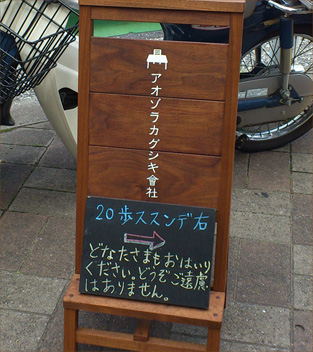 アオゾラカグシキ會社
20歩ススンデ右
どなたさまもおはいり
ください。どうぞご遠慮
はありません。